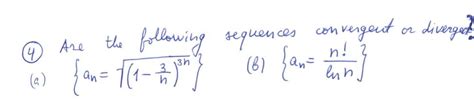 ④ Are the following sequences convergent or divergent?
(a) {aₙ = √(1 - 3/n)³ⁿ} (b) {aₙ = n!/ln n}